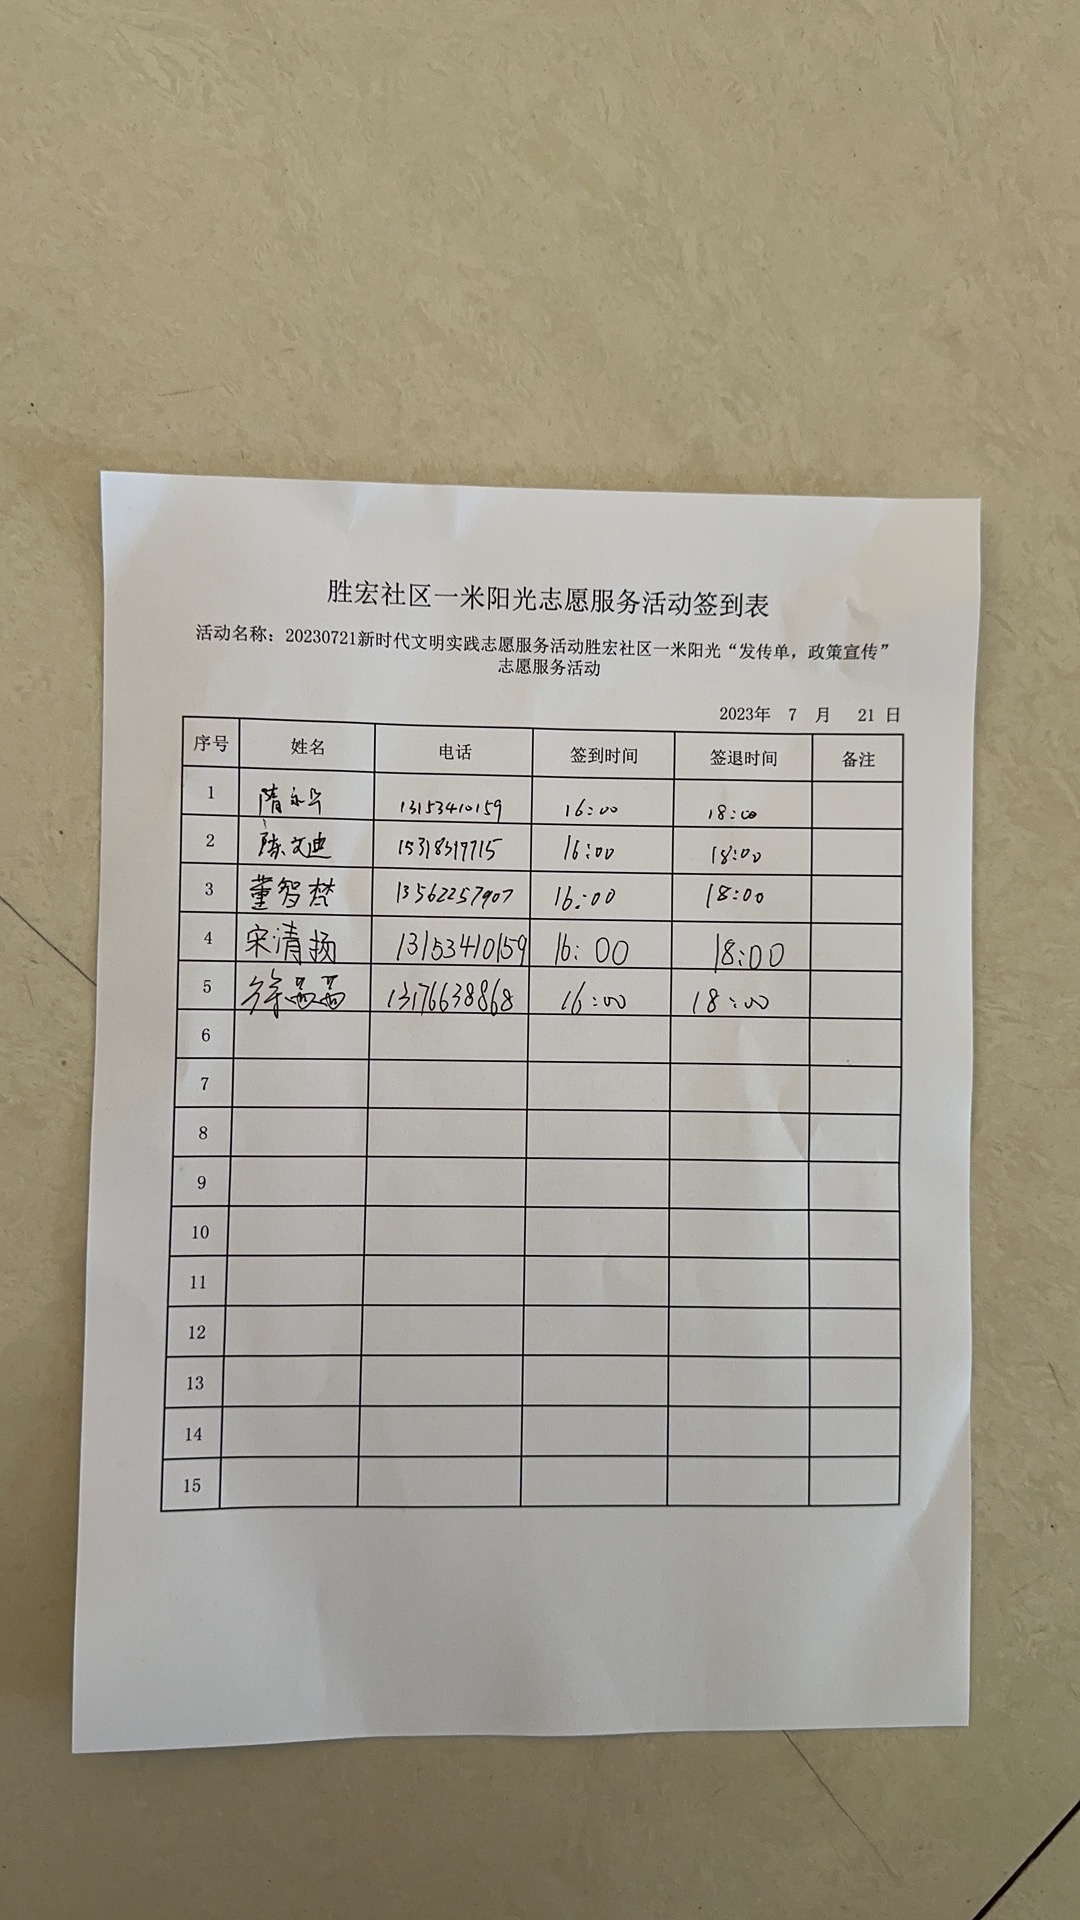 胜宏社区一米阳光志愿服务活动签到表
活动名称：20230721新时代文明实践志愿服务活动胜宏社区一米阳光“发传单，政策宣传”
志愿服务活动
2023年 7 月 21 日
序号 姓名 电话 签到时间 签退时间 备注
1 隋永华 13153410159 16:00 18:00
2 陈文迪 15318317715 16:00 18:00
3 董智梵 13562257907 16:00 18:00
4 宋清扬 13153410159 16:00 18:00
5 徐 13176638868 16:00 18:00
6
7
8
9
10
11
12
13
14
15